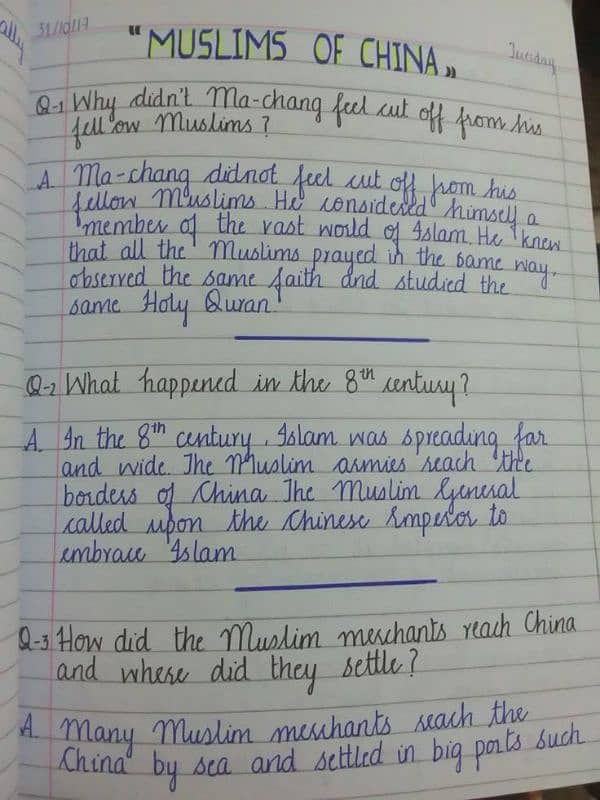 ally
31/10/17
Tuesday
"MUSLIMS OF CHINA"
Q-1 Why didn't Ma-chang feel cut off from his
fellow Muslims?
A. Ma-chang didnot feel cut off from his
fellow Muslims. He considered himself a
member of the vast world of Islam. He knew
that all the Muslims prayed in the same way,
observed the same faith and studied the
same Holy Quran.
Q-2 What happened in the 8th century?
A. In the 8th century, Islam was spreading far
and wide. The Muslim armies reach the
borders of China The Muslim General
called upon the Chinese Emperor to
embrace Islam
Q-3 How did the Muslim merchants reach China
and where did they settle?
A Many Muslim merchants reach the
China by sea and settled in big ports such